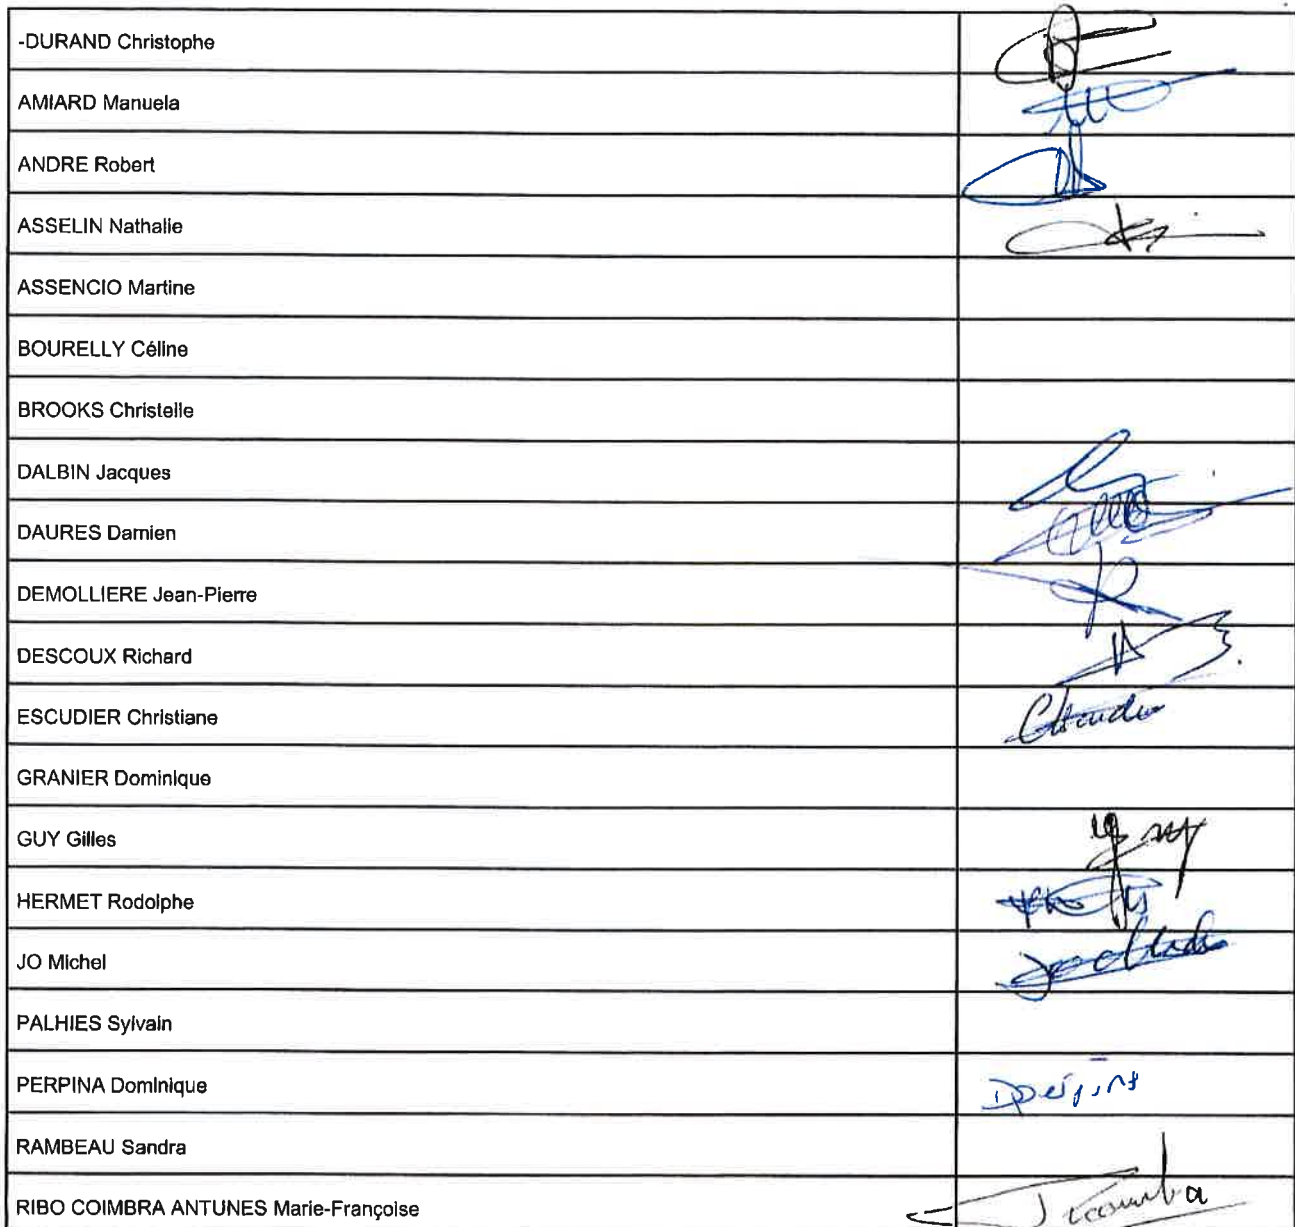 -DURAND Christophe
AMIARD Manuela
ANDRE Robert
ASSELIN Nathalie
ASSENCIO Martine
BOURELLY Céline
BROOKS Christelle
DALBIN Jacques
DAURES Damien
DEMOLLIERE Jean-Pierre
DESCOUX Richard
ESCUDIER Christiane
GRANIER Dominique
GUY Gilles
HERMET Rodolphe
JO Michel
PALHIES Sylvain
PERPINA Dominique
RAMBEAU Sandra
RIBO COIMBRA ANTUNES Marie-Françoise